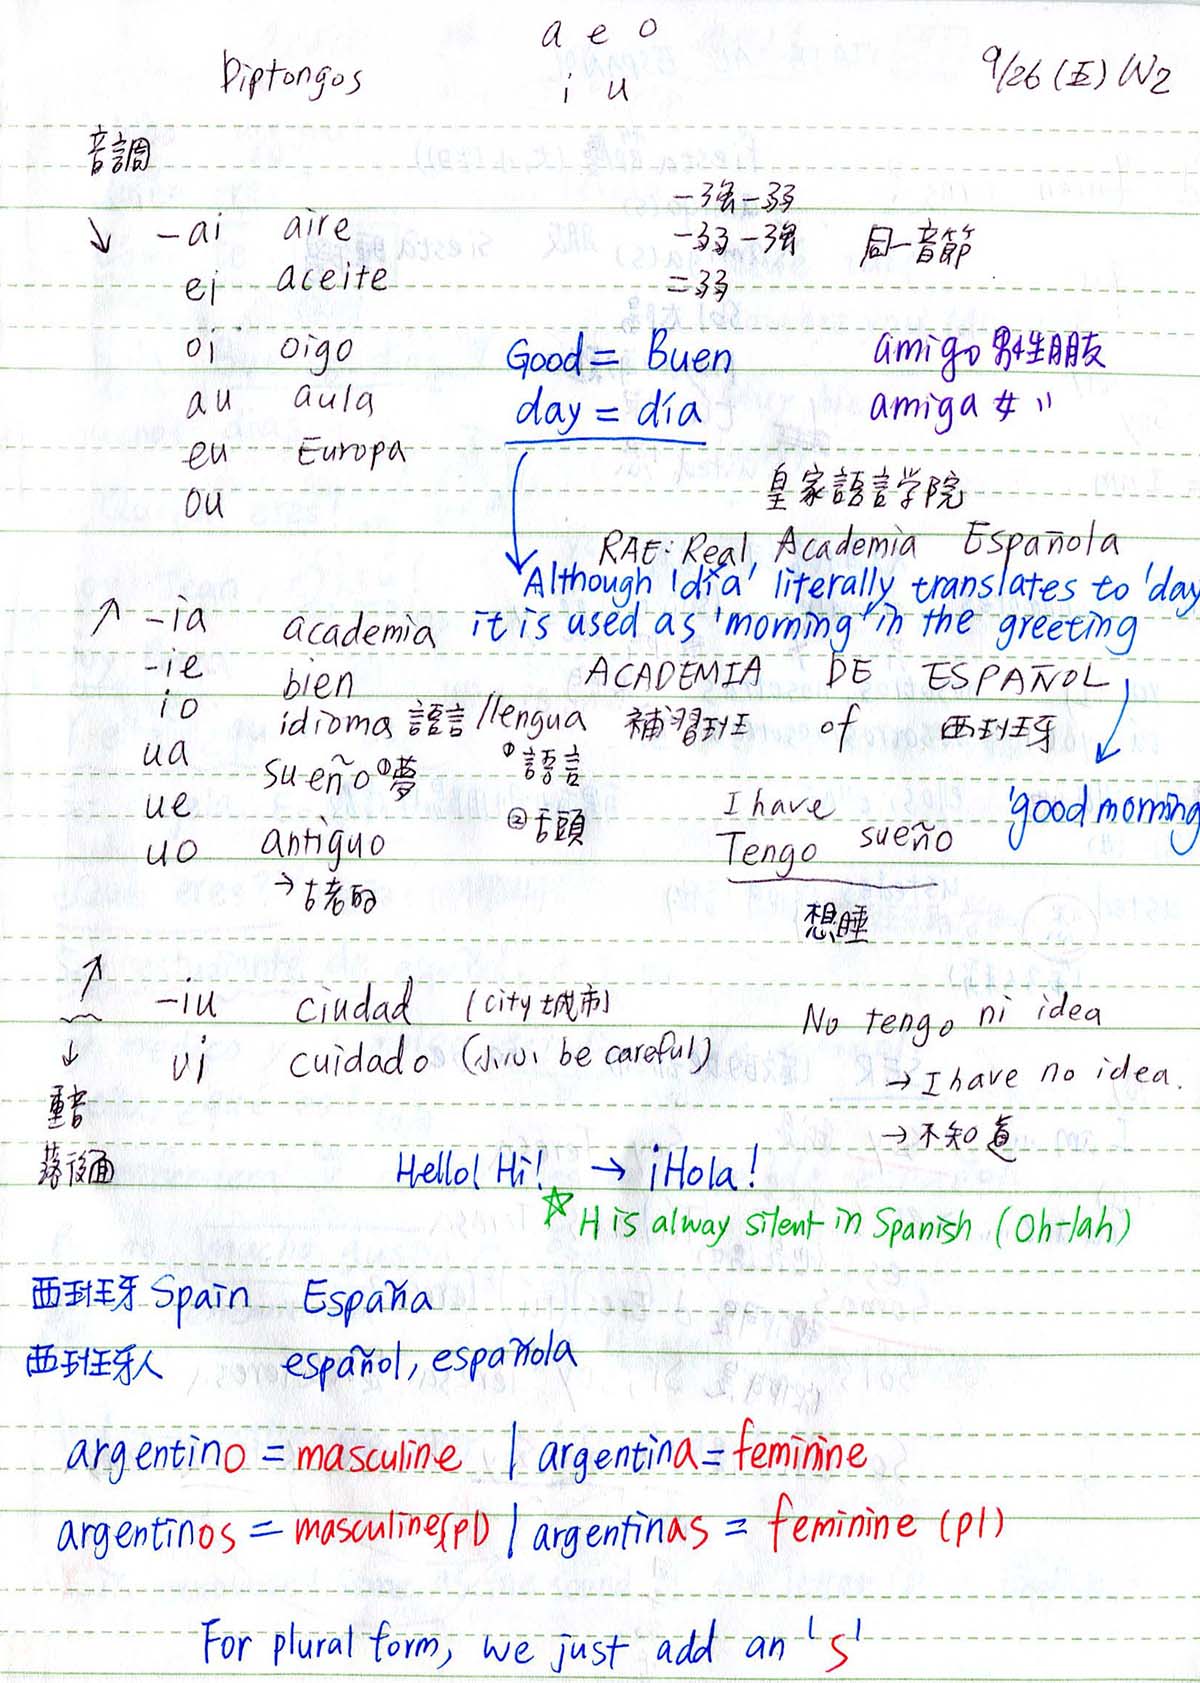 a e o
Diptongos i u 9/26 (五) W2
音調
↘ -ai aire 一強一弱
一弱一強 同一音節
ei aceite =弱
oi oigo Good = Buen amigo 男生朋友
au aula day = día amiga 女 〃
eu Europa
ou 皇家語言学院
RAE: Real Academia Española
Although 'día' literally translates to 'day
↗ -ia academia it is used as 'morning' in the greeting
-ie bien ACADEMIA DE ESPAÑOL
io idioma 語言 /lengua 補習班 of 西班牙
ua sueño ①夢 ①語言
ue ②舌頭 I have 'good morning
uo antiguo Tengo sueño
→古老的 想睡
↗ -iu ciudad (city 城市) No tengo ni idea
↓ ui cuidado (小心 be careful) → I have no idea.
重音 → 不知道
落後面 Hello! Hi! → ¡Hola!
☆ H is alway silent in Spanish (Oh-lah)
西班牙 Spain España
西班牙人 español, española
argentino = masculine | argentina = feminine
argentinos = masculine(pl) | argentinas = feminine (pl)
For plural form, we just add an 's'